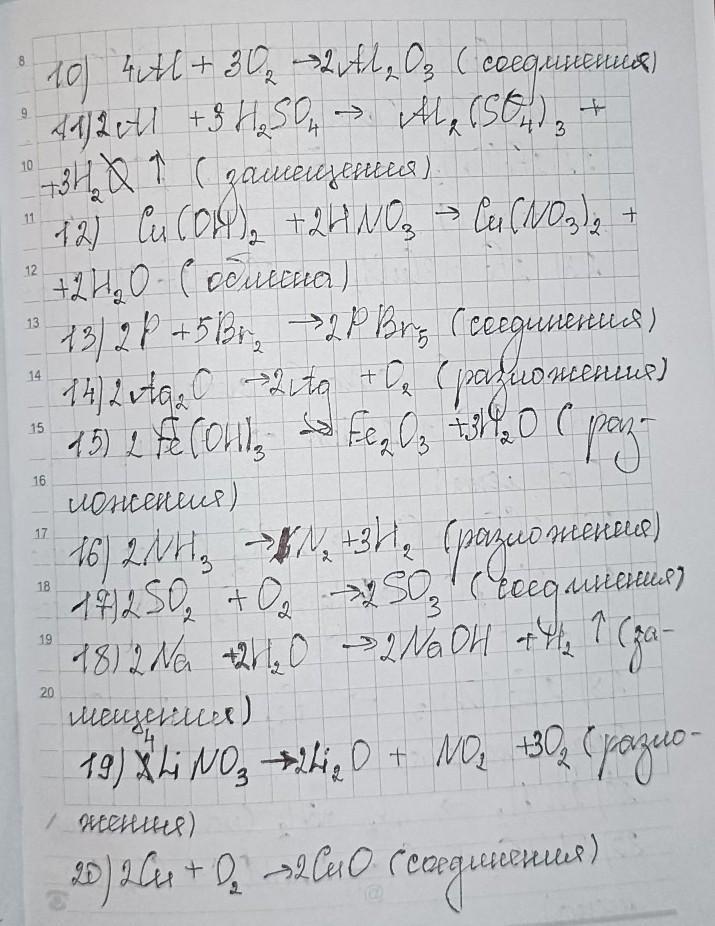 8
10) 4Al + 3O₂ → 2Al₂O₃ (соединения)
9
11) 2Al + 3H₂SO₄ → Al₂(SO₄)₃ +
10
+3H₂ ↑ (замещения)
11
12) Cu(OH)₂ + 2HNO₃ → Cu(NO₃)₂ +
12
+2H₂O (обмена)
13
13) 2P + 5Br₂ → 2PBr₅ (соединения)
14
14) 2Ag₂O → 2Ag + O₂ (разложения)
15
15) 2Fe(OH)₃ → Fe₂O₃ + 3H₂O (раз-
16
ложения)
17
16) 2NH₃ → N₂ + 3H₂ (разложения)
18
17) 2SO₂ + O₂ → 2SO₃ (соединения)
19
18) 2Na + 2H₂O → 2NaOH + H₂ ↑ (за-
20
мещения)
19) 4LiNO₃ → 2Li₂O + NO₂ + 3O₂ (разло-
жения)
20) 2Cu + O₂ → 2CuO (соединения)